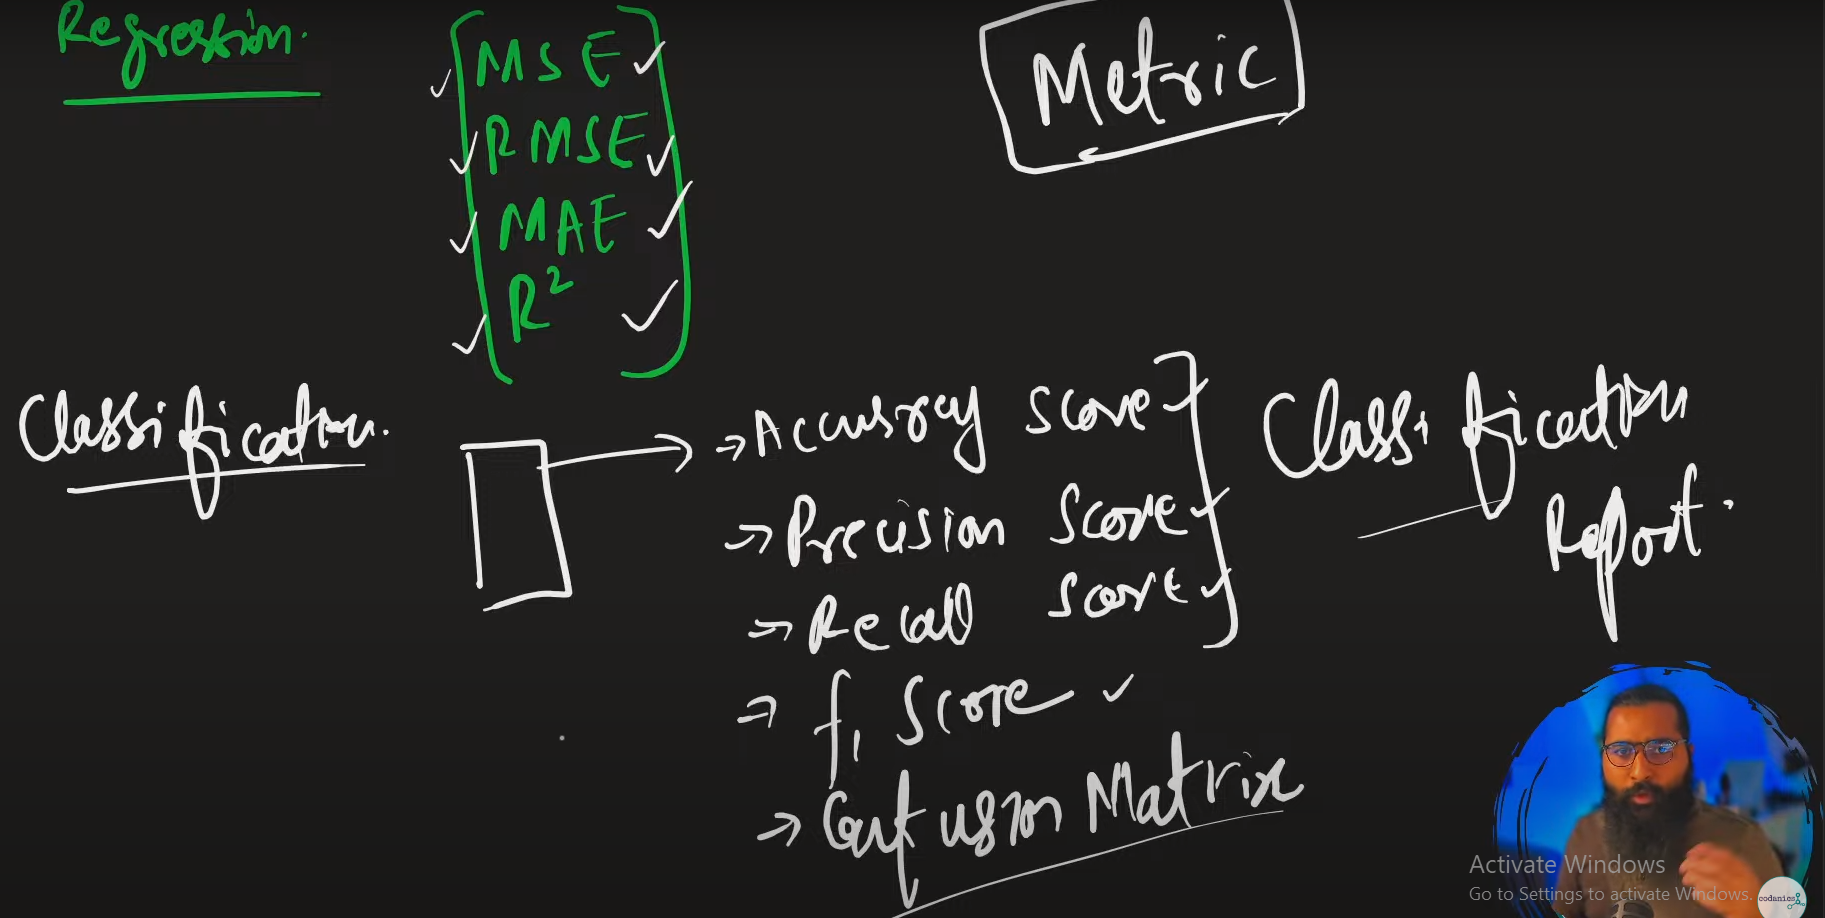 Regression.
MSE
RMSE
MAE
R²
Metric
Classification.
→ Accuracy Score
→ Precision Score
→ Recall Score
→ f1 Score
→ Confusion Matrix
Classification
Report.
Activate Windows
Go to Settings to activate Windows.
codanics